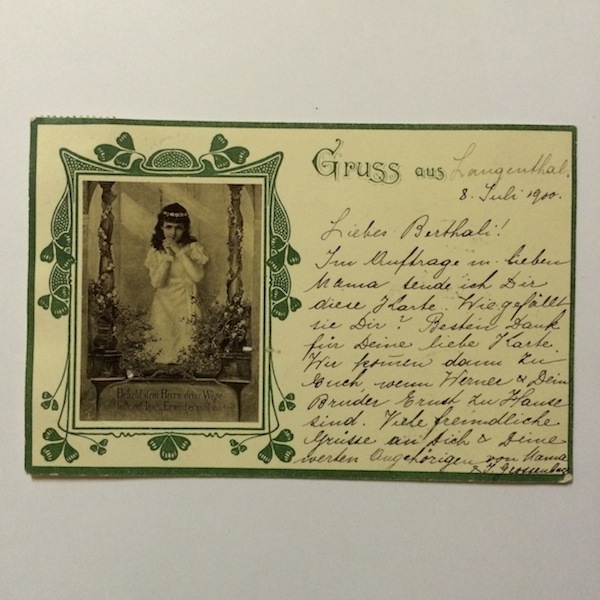 Gruss aus Langenthal.
8. Juli 1900.
Liebes Berthali!
Im Auftrage m. lieben
Mama sende ich Dir
diese Karte. Wie gefällt
sie Dir? Besten Dank
für Deine liebe Karte.
Wir kom̄en dann zu
Euch, wenn Werner & Dein
Bruder Ernst zu Hause
sind. Viele freundliche
Grüsse an Dich & Deine
werten Angehörigen von Mama
Befiehl dem Herrn deine Wege